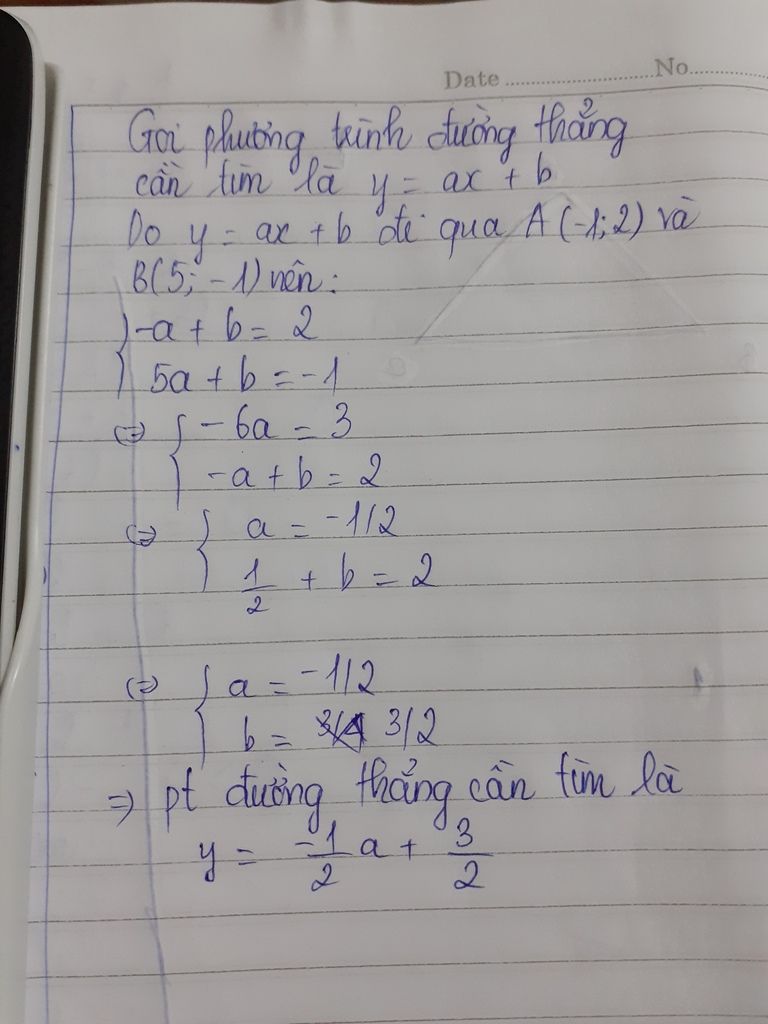 Date No
Gọi phương trình đường thẳng
cần tìm là y = ax + b
Do y = ax + b đi qua A (-1; 2) và
B(5; -1) nên:
{ -a + b = 2
5a + b = -1
⇔ { -6a = 3
-a + b = 2
⇔ { a = -1/2
1/2 + b = 2
⇔ { a = -1/2
b = 3/2
⇒ pt đường thẳng cần tìm là
y = -1/2 a + 3/2